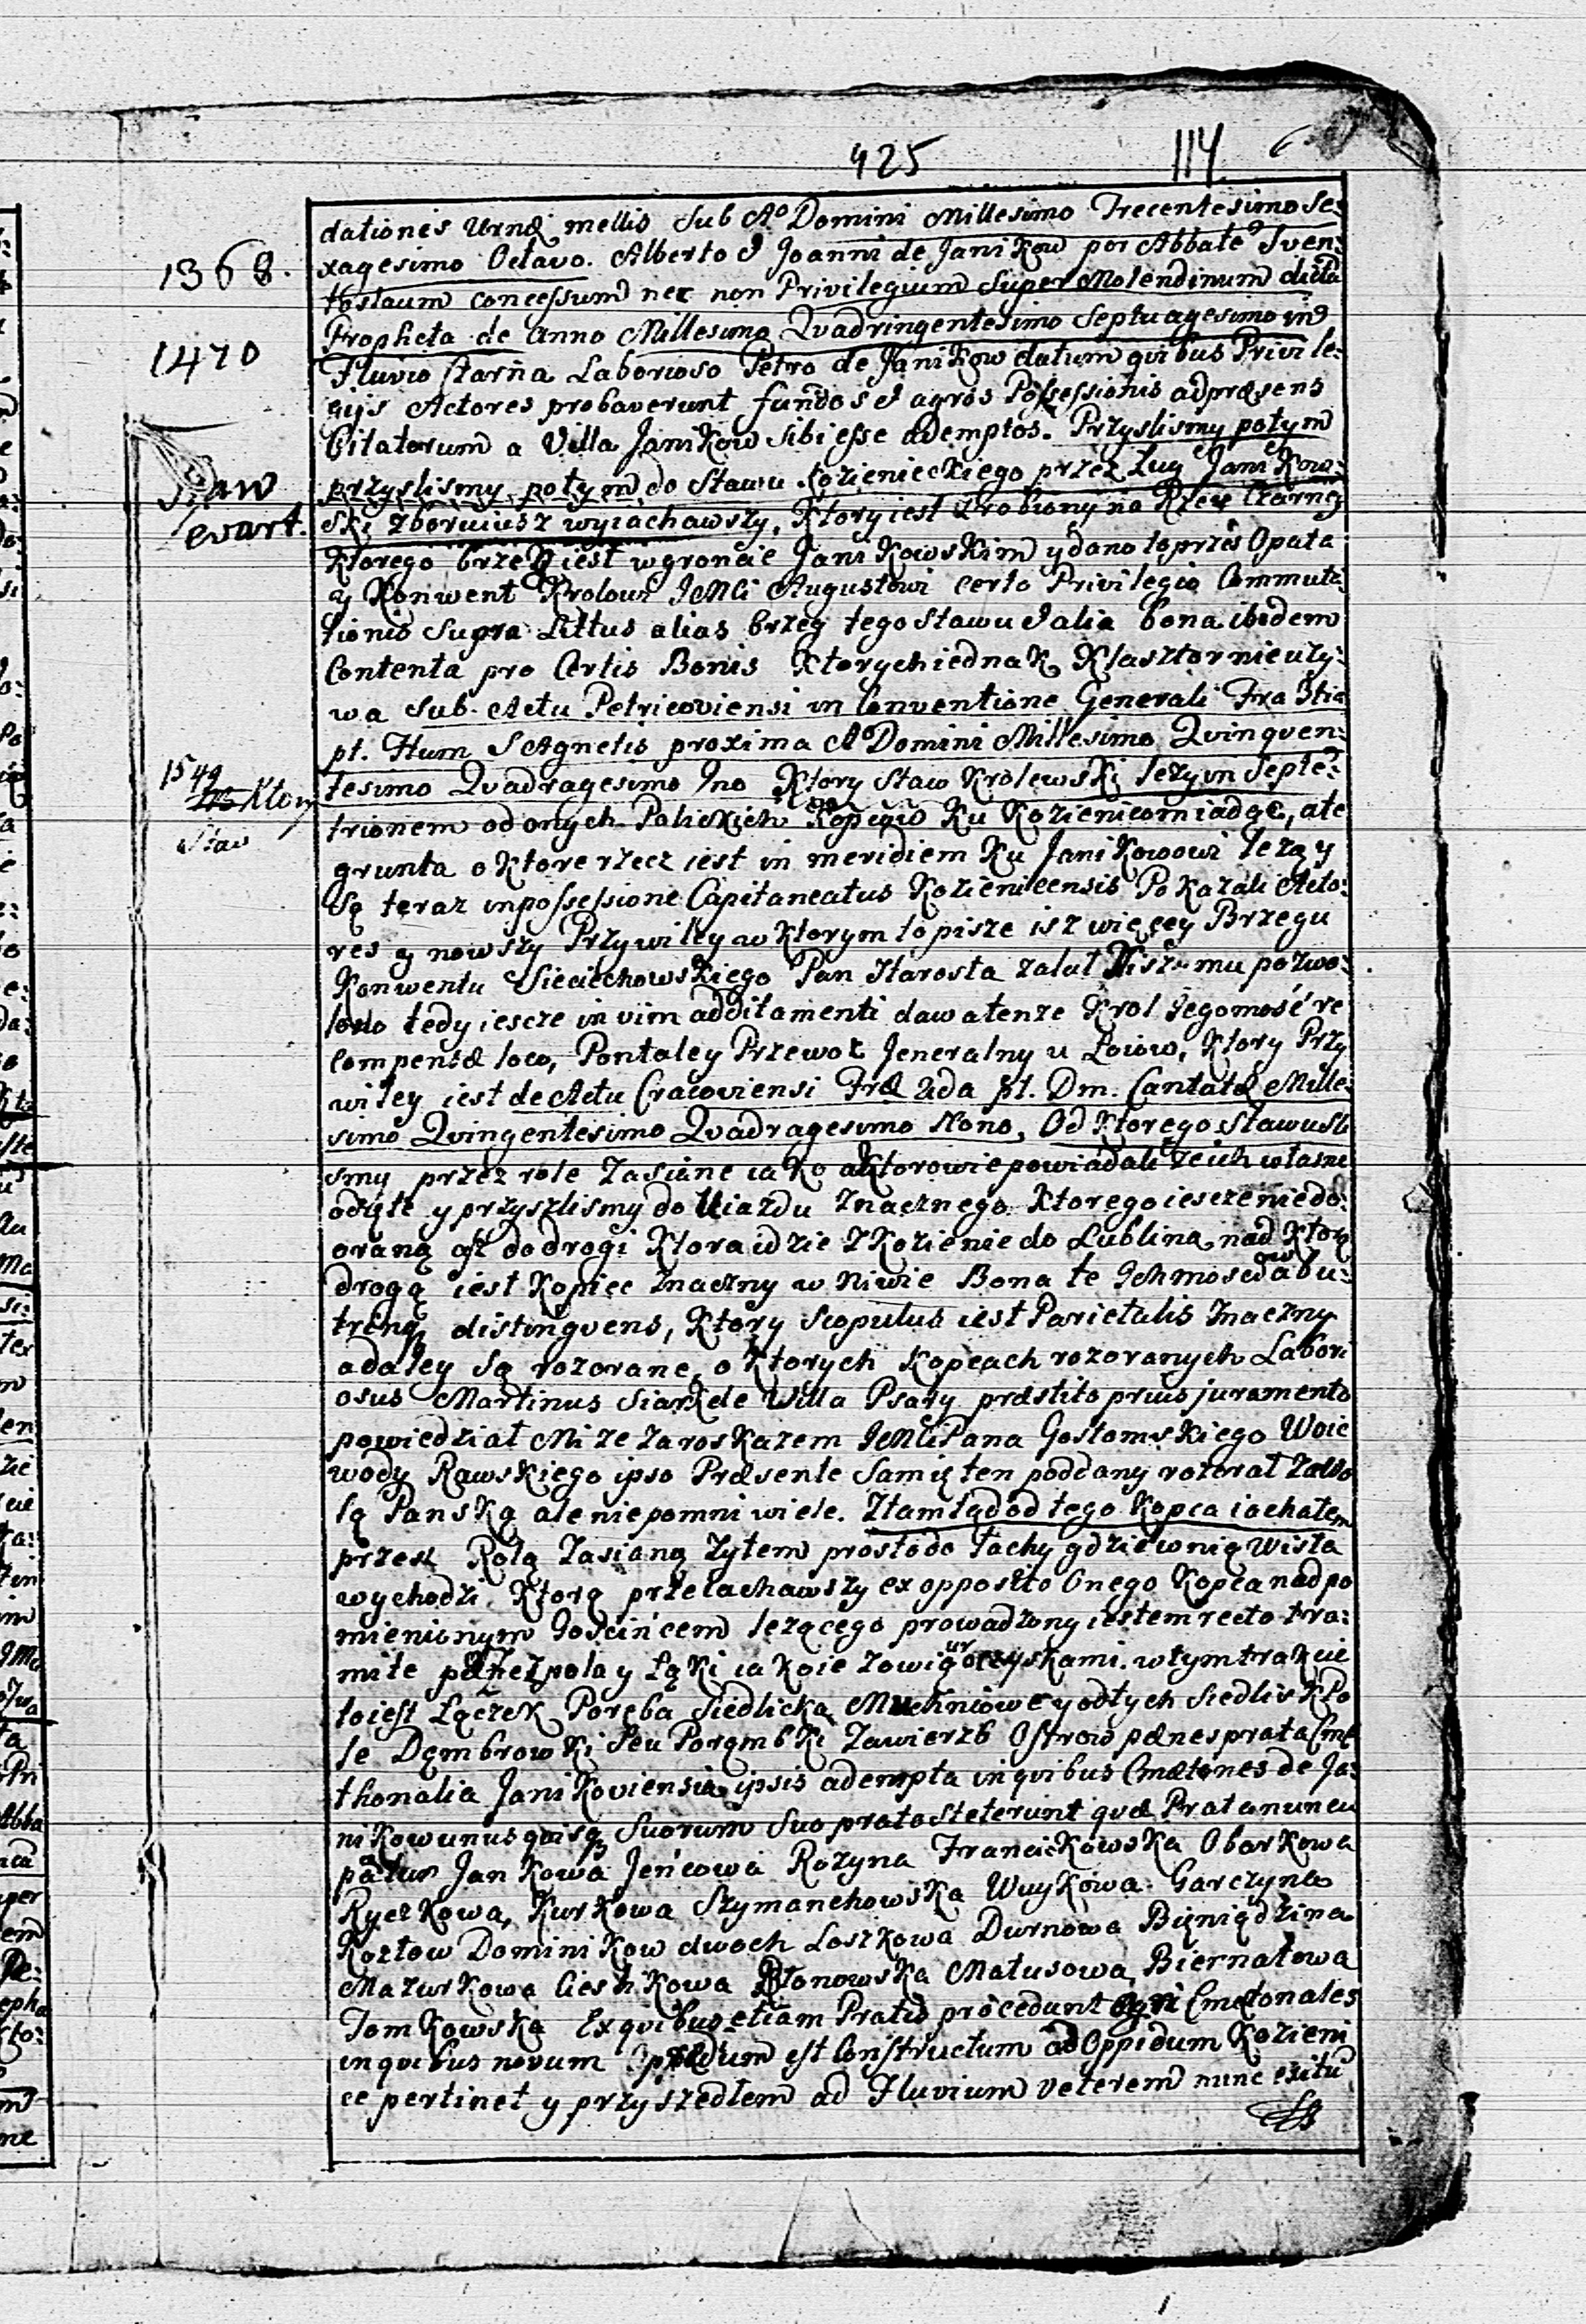 425 114
dationes Urnæ mellis Sub Aº Domini Millesimo Trecentesimo Se:
1368.
xagesimo Octavo. Alberto & Joanni de Janikow per Abbatē Sven:
toslaum concessum nec non Privilegium Super Molendinum dictū
Propheta de Anno Millesimo Qvadringentesimo Septuagesimo in
1470
Fluvio starna Laborioso Petro de Janikow datum qvibus Privile:
gijs Actores probaverunt fundos & agros Possessionis ad præsens
Citatorum a Villa Janikow sibi esse ademptos. Przyslismy potym
przyslismy potym do Stawu Kozienieckiego przez Ług Janikow:
Staw
ski zboruiusz wyiachawszy, Ktory iest zrobiony na Rzece Czarney
ewart.
Ktorego brzeg iest w gronćie Janikowskim y dano to przes Opata
y Konwent Krolowi JeMći Augustowi certo Privilegio Commuta:
tionis Supra Littus alias brzeg tego Stawu & alia bona ibidem
Contenta pro Certis Bonis Ktorych iednak Klasztor nie uzy:
wa Sub Actu Petricoviensi in Conventione Generali Fra 3tia
pt. Ftum S Agnetis proxima Aº Domini Millesimo Qvinqven:
1549
tesimo Qvadragesimo Ino Ktory Staw Krolewski lezy in Septē:
Ktory
Staw
trionem od onych Palickich Kopcow Ku Kozienicom iadąc, ale
grunta o Ktore rzecz iest in meridiem Ku Janikowowi lezą y
Są teraz in possessione Capitaneatus Kozienicensis Pokazali Acto:
res y nowszy Przywiley w Ktorym to pisze isz więcey Brzegu
Konwentu Sieciechowskiego Pan Starosta zalał Nisz mu pozwo:
lono tedy iescze in vim additamenti dawa tenze Krol Jegomość re
compensæ loco, Pontaley Przewoz Jeneralny u Łoiow, Ktory Przy
wiley iest de Actu Cracoviensi Fræ 2da pt. Dm. Cantatæ Mille:
simo Qvingentesimo Qvadragesimo Nono, Od Ktorego Stawu sli
smy przez role Zasiane iako aktorowie powiadali ze ich własne
odięte y przyszlismy do Uiazdu znacznego Ktorego iescze nie do:
orano asz do drogi Ktora idzie z Kozienic do Lublina, nad Ktorą
drogą iest Kopiec znaczny w Niwie Bona te Ichmosciow ab u:
trinq distingvens, Ktory Scopulus iest Parietalis znaczny
adaley są rozorane, o Ktorych Kopcach rozoranych Labori
osus Martinus Siark de Villa Psary præstito prius juramento
powiedział Mi ze za roskazem JeMći Pana Gostomskiego Woie
wody Rawskiego ipso Præsente Sam ię ten poddany rozorał za Wo
lą Panską ale nie pomni wiele. Ztamtąd od tego Kopca iachałem
przez Rolą Zasianą Zytem prosto do Łachy gdzie w nię Wisła
wychodzi, Ktorą przeiachawszy ex opposito Onego Kopca nad po
mienionym Gościńcem lezącego prowadzony iestem recto tra:
mite przez pola y Łąki iakoie zowią uroczyskami. w tym trakcie
to iest Łączek Poręba Siedlicka Muchniowe y od tych Siedlisk Po
le Dąmbrowki Seu Porąmbki Zawierzb Ostrow pænes prata Cme
thonalia Janikoviensia ipsis adempta in qvibus Cmetones de Ja:
nikow unus qvisq Suorum Suo prato Steterunt qvæ Prata nuncu
patur Jankowa Jeńcowa Rozyna Franćikowska Oborkowa
Ryczkowa, Kurkowa Szymanchowska Wuykowa Garczyna
Kozłow Dominikow dwoch Loszkowa Durnowa Bięniądzina
Mazurkowa Cieslikowa Płonowska Matusowa, Biernatowa
Tomkowska Ex qvibus etiam Pratis procedunt agri Cmetonales
in qvibus novum Oppidum est Constructum ad Oppidum Kozieni
ce pertinet y przyszedłem ad Fluvium Veterem nunc exitū